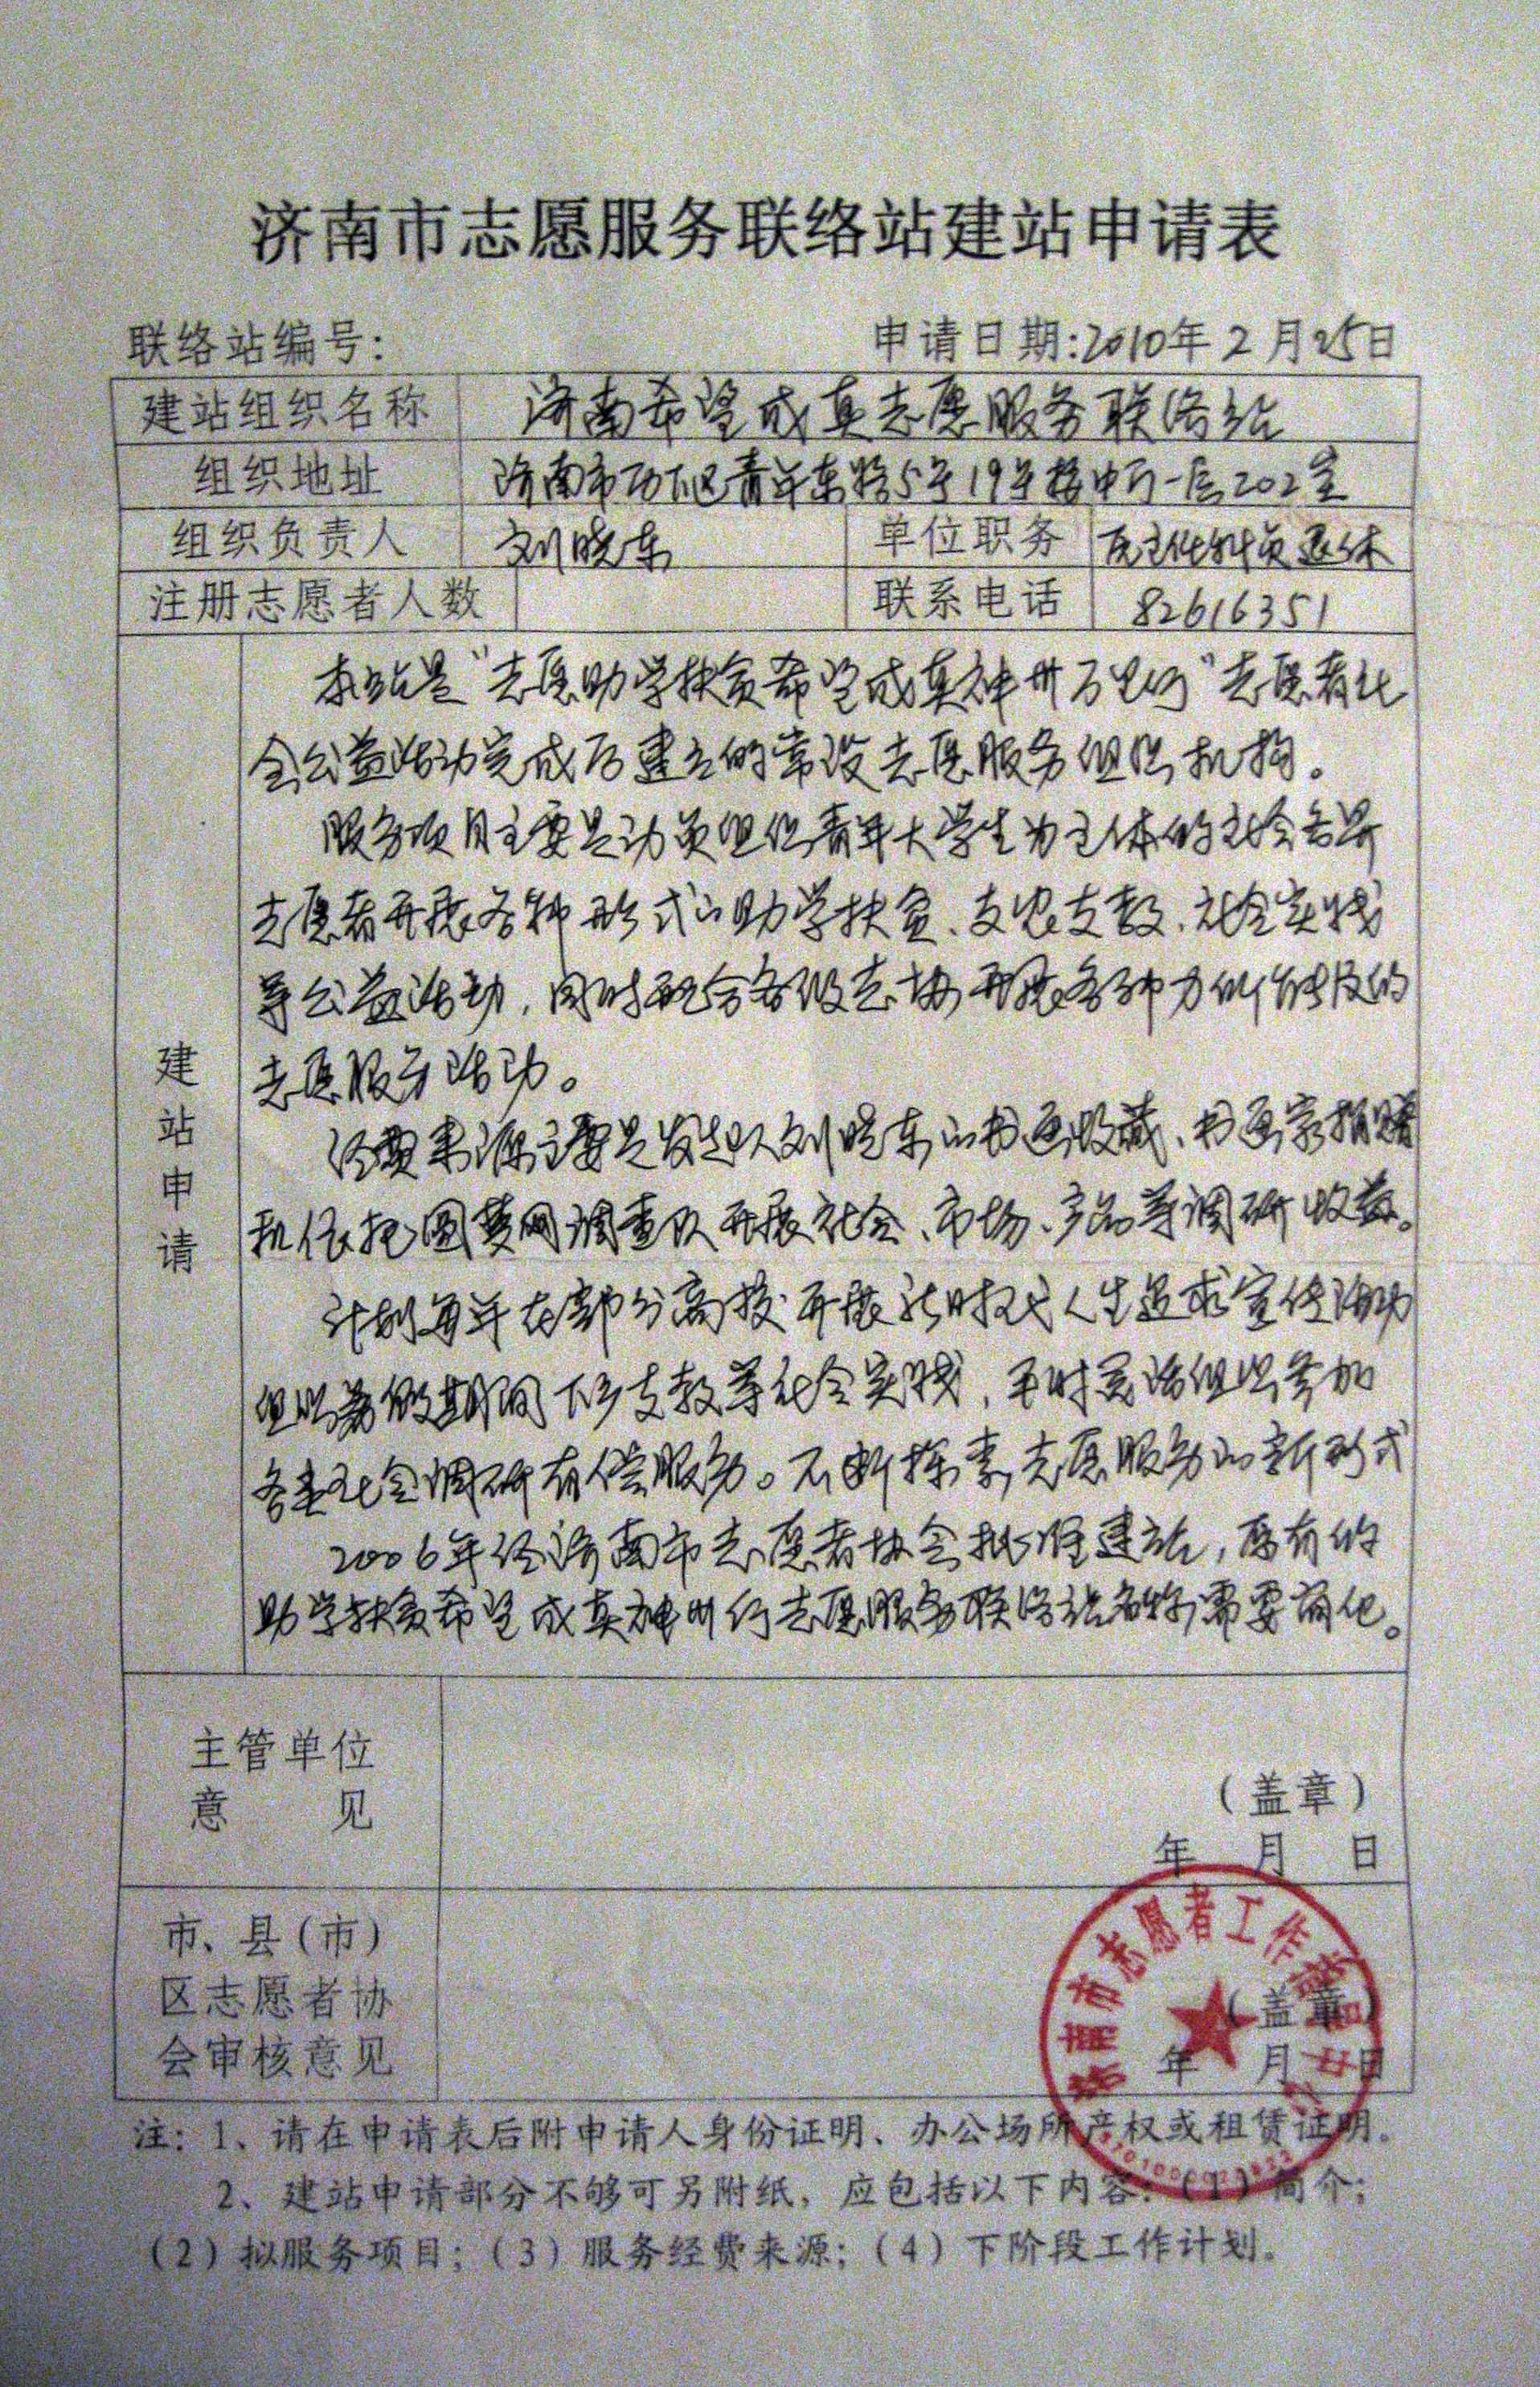 济南市志愿服务联络站建站申请表
联络站编号: 申请日期:2010年2月25日
建站组织名称 济南希望成真志愿服务联络站
组织地址 济南市历下区青年东路5号19号楼中 一层202室
组织负责人 刘晓东 单位职务
注册志愿者人数 联系电话 82616351
建站申请
本站是“志愿助学扶贫希望成真神州万里行”志愿者社
会公益活动完成后建立的常设志愿服务组织机构。
服务项目主要是动员组织青年大学生为主体的社会各界
志愿者开展各种形式的助学扶贫、支农支教、社会实践
等公益活动,同时配合各级志协开展各种力所能及的
志愿服务活动。
经费来源主要是发起人刘晓东的书画收藏、书画家捐赠
和依托 调查队开展社会、市场、产品等调研收益。
计划每年在部分高校开展新时代人生追求宣传活动
组织寒假 支教等社会实践,平时灵活组织参加
各类社会调研有偿服务。不断探索志愿服务的新形式
2006年经济南市志愿者协会批准建站,原有的
助学扶贫希望成真神州行志愿服务联络站名称需要简化。
主管单位
意 见
(盖章)
年 月 日
市、县(市)
区志愿者协
会审核意见
(盖章)
年 月 日
志愿者工作
注:1、请在申请表后附申请人身份证明、办公场所产权或租赁证明。
2、建站申请部分不够可另附纸,应包括以下内容:(1)简介;
(2)拟服务项目;(3)服务经费来源;(4)下阶段工作计划。